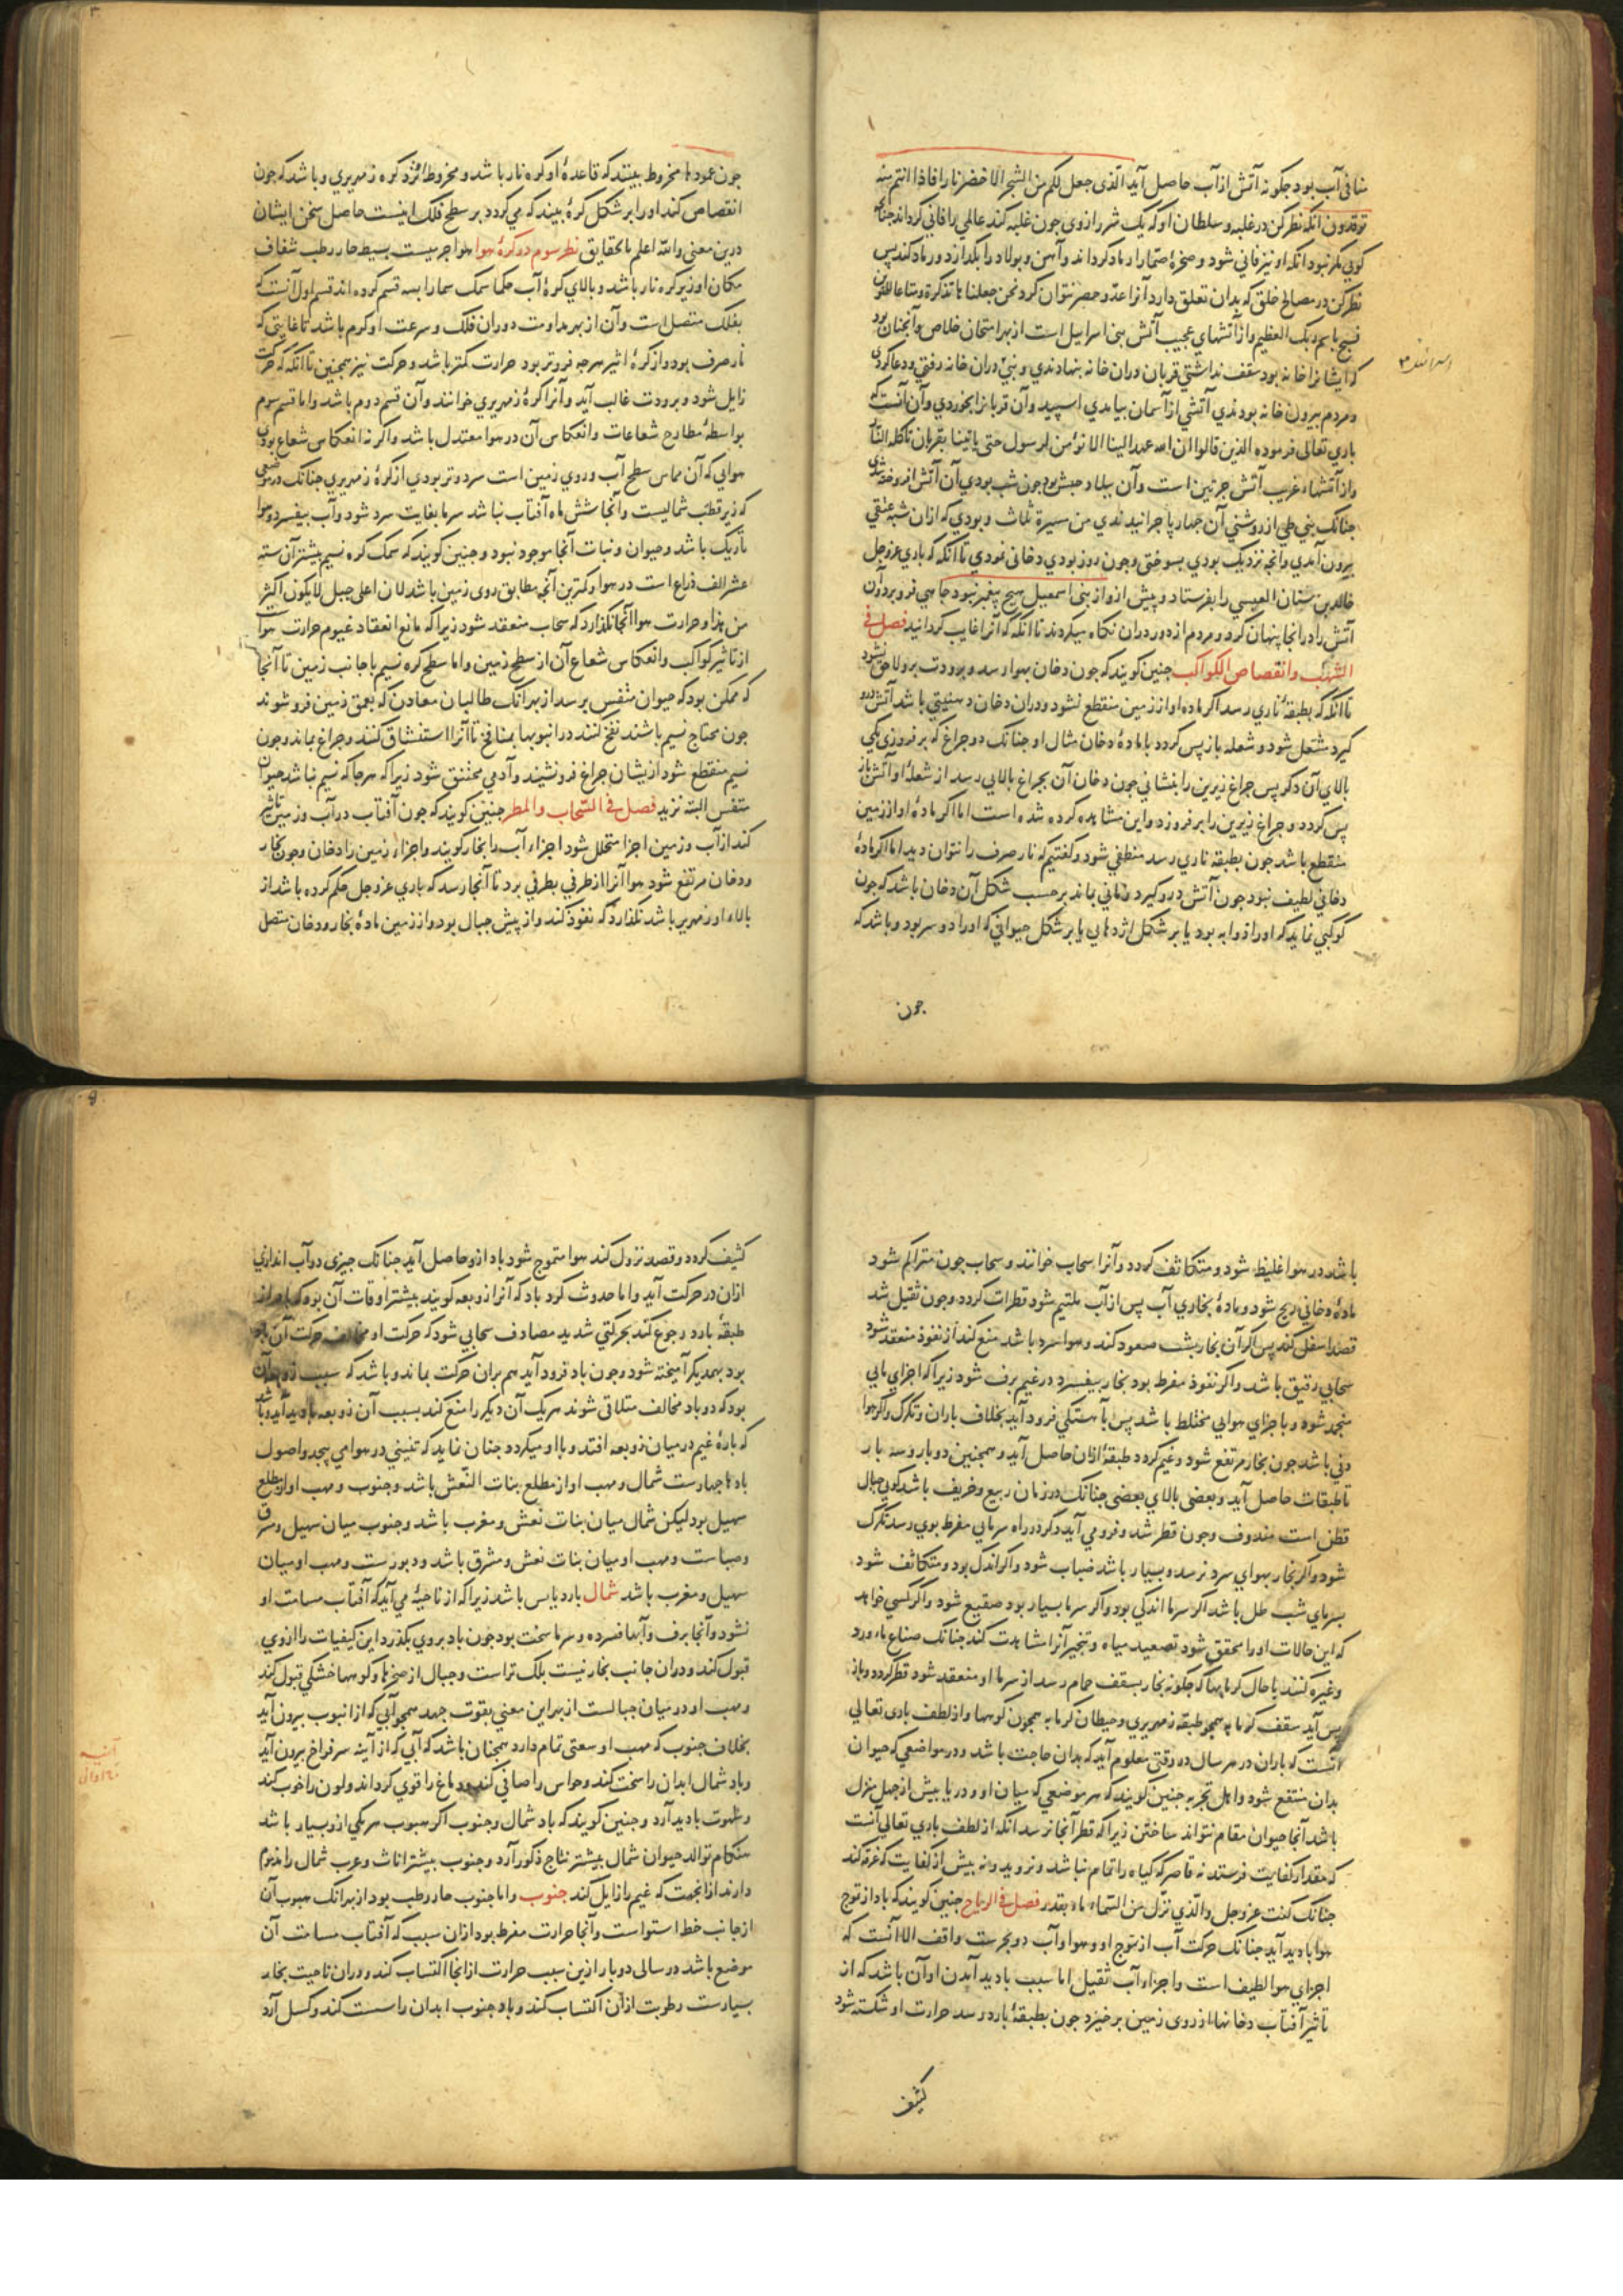 منافی آب بود چکونه آتش از آب حاصل آید الّذی جعل لکم من الشجر الاخضر نارا فاذا انتم منه
توقدون انکه نظر کن در غلبه و سلطان او که یک شرر از وی چون غلبه کند عالمی را فانی کرداند چنانک
کویی مکر نبود انکه او نیز فانی شود و صخرهٔ صمّا را رماد کرداند و آهن و بولاد را بکدازد و رماد کند پس
نظر کن در مصالح خلق که بدان تعلق دارد آنرا عدّ و حصر نتوان کرد نحن جعلناها تذکرة و متاعا للمقوین
فسبح باسم ربک العظیم و از آتشهای عجیب آتش بنی اسراییل است از بهر امتحان خلاص و آنچنان بود
که ایشانرا خانه بود سقف نداشتی قربان دران خانه بنهادندی و بنیّ دران خانه رفتی و دعا کردی
و مردم بیرون خانه بودندی آتشی از آسمان بیامدی اسپید و آن قربانرا بخوردی و آن آنست که
باری تعالی فرموده الذین قالوا ان الله عهد الینا الا نؤمن لرسول حتی یاتینا بقربان تاکله النار
و از آتشهاء غریب آتش حرتین است و آن ببلاد حبش بود چون شب بودی آن آتش افروخته شدی
چنانک بنی طی از روشنی آن چهارپا چرانیدندی من مسیرة ثلاث و بودی که ازان شبه عنقی
بیرون آمدی و انچه نزدیک بودی بسوختی و چون روز بودی دخانی نمودی تا انکه که باری عزوجل
خالد بن سنان العبسی را بفرستاد و پیش از و از بنی اسمعیل هیچ پیغمبر نبود چاهی فرو برد و آن
آتش را درانجا پنهان کرد و مردم از دور دران نکاه میکردند تا انکه که آنرا غایب کردانید فصل فی
الشهب و انقضاض الکواکب چنین کویند که چون دخان بهوا رسد و برودت بر و لاحق نشود
تا انکه که بطبقهٔ ناری رسد اکر ماده او از زمین منقطع نشود و دران دخان دهنیتی باشد آتش درو
کیرد مشتعل شود و شعله بازپس کردد با مادهٔ دخان مثال او چنانک دو چراغ که بر فروزی یکی
بالای آن دکر پس چراغ زیرین را بنشانی چون دخان آن بچراغ بالایی رسد از شعلهٔ او آتش باز
پس کردد و چراغ زیرین را بر فروزد و این مشاهده کرده شده است اما اکر مادهٔ او از زمین
منقطع باشد چون بطبقه ناری رسد منطفی شود و کفتیم که نار صرف را نتوان دید اما اکر مادهٔ
دخانی لطیف نبود چون آتش درو کیرد زمانی بماند بر حسب شکل آن دخان باشد که چون
کوکبی نماید که او را ذوابه بود یا بر شکل اژدهایی یا بر شکل حیوانی که او را دو سر بود و باشد که
چون
چون عمودها مخروط بینند که قاعدهٔ او کره نار باشد و مخروط او نزد کره زمهریری و باشد که چون
انقضاض کند او را بر شکل کرهٔ بیند که می کردد بر سطح فلک اینست حاصل سخن ایشان
درین معنی والله اعلم بالحقایق نظر سوم در کرهٔ هوا هوا جرمیست بسیط حار رطب شفاف
مکان او زیر کره نار باشد و بالای کرهٔ آب حکما سمک سما را بسه قسم کرده اند قسم اول آنست که
بفلک متصل است و آن از بهر مداومت دوران فلک و سرعت او کرم باشد تا غایتی که
نار صرف بود و از کرهٔ اثیر هر چه فروتر بود حرارت کمتر باشد و حرکت نیز همچنین تا انکه که حرکت
زایل شود و برودت غالب آید و آنرا کرهٔ زمهریری خوانند و آن قسم دوم باشد و اما قسم سوم
بواسطهٔ مطارح شعاعات و انعکاس آن در هوا معتدل باشد و اکر نه انعکاس شعاع بودی
هوایی که آن مماس سطح آب و روی زمین است سردتر بودی از کرهٔ زمهریری چنانک در موضعی
که زیر قطب شمالیست و آنجا شش ماه آفتاب نباشد سرما بغایت سرد شود و آب بیفسرد و هوا
تاریک باشد و حیوان و نبات آنجا موجود نبود و چنین کویند که سمک کره نسیم بیشتر آن سته
عشر الف ذراع است در هوا و کمترین آنچه مطابق روی زمین باشد لان اعلی جبل لا یکون اکثر
من هذا و حرارت هوا آنجا نکذارد که سحاب منعقد شود زیرا که مانع انعقاد غیوم حرارت هواست
از تاثیر کواکب و انعکاس شعاع آن از سطح زمین و اما سطح کره نسیم با جانب زمین تا آنجا
که ممکن بود که حیوان متنفس برسد از بهر آنک طالبان معادن که بعمق زمین فرو شوند
چون محتاج نسیم باشند نفخ کنند در انبوبها بمنافخ تا آنرا استنشاق کنند و چراغ بماند و چون
نسیم منقطع شود از یشان چراغ فرو نشیند و آدمی مختنق شود زیرا که هر جا که نسیم نباشد حیوان
متنفس البته نزید فصل فی السّحاب والمطر چنین کویند که چون آفتاب در آب و زمین تاثیر
کند از آب و زمین اجزا متحلل شود اجزاء آب را بخار کویند و اجزاء زمین را دخان و چون بخار
و دخان مرتفع شود هوا آنرا از طرفی بطرفی برد تا آنجا رسد که باری عزوجل حکم کرده باشد از
بالاء او زمهریر باشد نکذارد که نفوذ کند و از پیش جبال بود و از زمین مادهٔ بخار و دخان متصل
باشد در هوا غلیظ شود و متکاثف کردد و آنرا سحاب خوانند و سحاب چون متراکم شود
مادهٔ دخانی ریح شود و مادهٔ بخاری آب پس از آب ملتیم شود قطرات کردد و چون ثقیل شد
قصد اسفل کند پس اکر آن بخار بشب صعود کند و هوا سرد باشد منع کند از نفوذ منعقد شود
سحابی رقیق باشد و اکر نفوذ مفرط بود بخار بیفسرد در غیم برف شود زیرا که اجزای مایی
منجمد شود و با جزای هوایی مختلط باشد پس بآهستکی فرود آید بخلاف باران و تکرک و اکر هوا
دفی باشد چون بخار مرتفع شود و غیم کردد طبقهٔ ازان حاصل آید و همچنین دوبار و سه بار
تا طبقات حاصل آید و بعضی بالای بعضی چنانک در زمان ربیع و خریف باشد کویی جبال
قطن است مندوف و چون قطر شد و فرو می آید و کر در راه سرمایی مفرط بوی رسد تکرک
شود و اکر بخار بهوای سرد نرسد و بسیار باشد ضباب شود و اکر اندک بود و متکاثف شود
بسرمای شب طل باشد اکر سرما اندکی بود و اکر سرما بسیار بود صقیع شود و اکر کسی خواهد
که این حالات او را محقق شود تصعید میاه و تبخیر آنرا مشاهدت کند چنانک صناع ماء ورد
وغیره کنند یا حال کرمابها که چکونه بخار بسقف حمام رسد از سرما او منعقد شود قطر کردد و باز
پس آید سقف کرمابه همچو طبقه زمهریری و حیطان کرمابه همچون کوهها و از لطف باری تعالی
آنست که باران در هر سال در وقتی معلوم آید که بدان حاجت باشد و در مواضعی که حیوان
بدان منتفع شود و اهل تجربه چنین کویند که هر موضعی که میان او و دریا بیش از چهل منزل
باشد آنجا حیوان مقام نتواند ساختن زیرا که قطر آنجا نرسد انکه از لطف باری تعالی آنست
که مقدار کفایت فرستد نه قاصر که کیاه را تمام نباشد و نروید و نه بیش از کفایت که غرقه کند
چنانک کفت عزوجل والّذی نزّل من السّماء ماء بقدر فصل فی الریاح چنین کویند که باد از تموج
هوا بادید آید چنانک حرکت آب از تموج او و هوا و آب دو بحرست واقف الا آنست که
اجزای هوا لطیف است و اجزاء آب ثقیل اما سبب بادید آمدن او آن باشد که از
تاثیر آفتاب دخانها از روی زمین برخیزد چون بطبقهٔ بارد رسد حرارت او شکسته شود
کثیف
کثیف کردد و قصد نزول کند هوا متموج شود باد ازو حاصل آید چنانک چیزی در آب اندازی
ازان در حرکت آید و اما حدوث کرد باد که آنرا زوبعه کویند بیشتر اوقات آن بود که باد از
طبقهٔ بارد رجوع کند بحرکتی شدید مصادف سحابی شود که حرکت او مخالف حرکت آن باد
بود بهمدیکر آمیخته شود و چون باد فرود آید هم بران حرکت بماند و باشد که سبب زوبعه آن
بود که دو باد مخالف متلاقی شوند هر یک آن دیکر را منع کند بسبب آن زوبعه بادید آید و باشد
که بارهٔ غیم در میان زوبعه افتد و با او میکردد چنان نماید که تنینی در هوا می پیچد و اصول
بادها چهارست شمال و مهب او از مطلع بنات النّعش باشد و جنوب و مهب او از مطلع
سهیل بود لیکن شمال میان بنات نعش و مغرب باشد و جنوب میان سهیل و شرق
و صباست و مهب او میان بنات نعش و مشرق باشد و دبورست و مهب او میان
سهیل و مغرب باشد شمال بارد یابس باشد زیرا که از ناحیهٔ می آید که آفتاب مسامت او
نشود و آنجا برف و آبها فسرده و سرما سخت بود چون باد بروی بکذرد این کیفیات را ازوی
قبول کند و دران جانب بخار نیست بلک تراست و جبال از صخرها و کوهها خشکی قبول کند
و مهب او در میان جبالست از بهر این معنی بقوت جهد همچو آبی که از انبوب بیرون آید
بخلاف جنوب که مهب او سعتی تمام دارد همچنان باشد که آبی که از آینه سر فراخ بیرون آید
و باد شمال ابدان را سخت کند و حواس را صافی کند و دماغ را قوی کرداند و لون را خوب کند
و شهوت بادید آرد و چنین کویند که باد شمال و جنوب اکر هبوب هر یکی ازو بسیار باشد
هنکام توالد حیوان شمال بیشتر نتاج ذکور آرد و جنوب بیشتر اناث و عرب شمال را مذموم
دارند از انجهت که غیم را زایل کند جنوب و اما جنوب حار و رطب بود از بهر انک هبوب آن
از جانب خط استواست و آنجا حرارت مفرط بود ازان سبب که آفتاب مسامت آن
موضع باشد در سالی دوبار ازین سبب حرارت از انجا اکتساب کند و دران ناحیت بخار
بسیارست رطوبت ازان اکتساب کند و باد جنوب ابدان را سست کند و کسل آرد